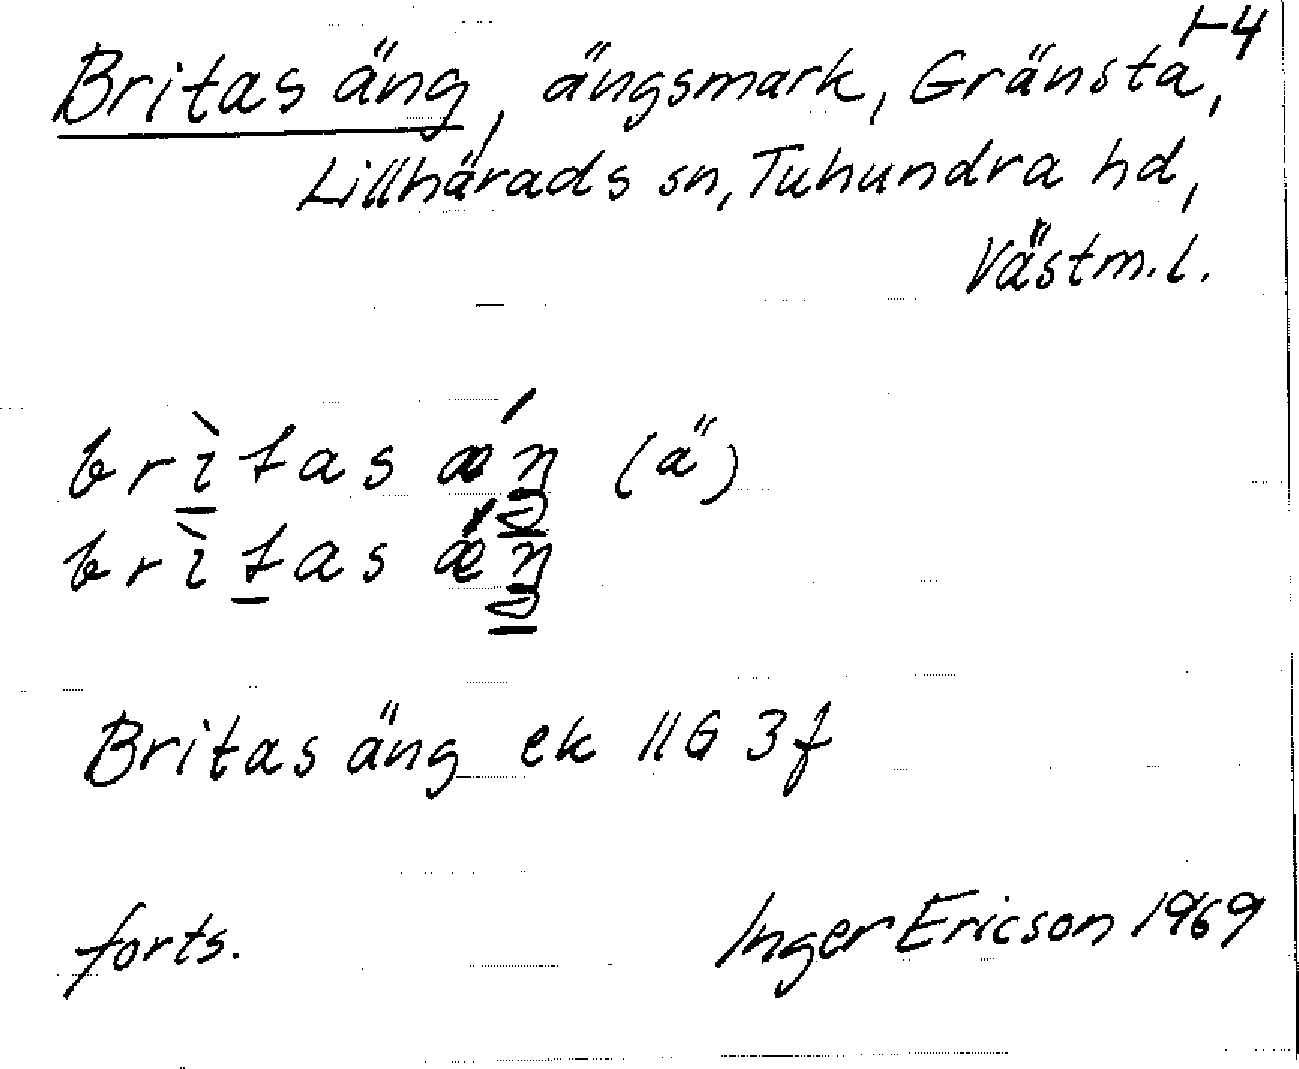 1-4
Britas äng, ängsmark, Gränsta,
Lillhärads sn, Tuhundra hd,
Västm. l.
brìtas ǽŋ (ä)
brìtas ǽŋ
Britas äng ek 11G 3f
forts. Inger Ericson 1969